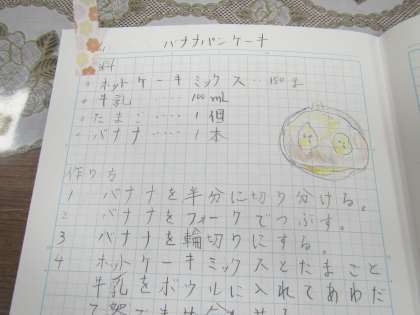 バナナパンケーキ
ホットケーキミックス‥150g
牛乳‥‥100mL
たまご‥‥1個
バナナ‥‥1本
作り方
1 バナナを半分に切り分ける。
2 バナナをフォークでつぶす。
3 バナナを輪切りにする。
4 ホットケーキミックスとたまごと
牛乳をボウルに入れてあわだ